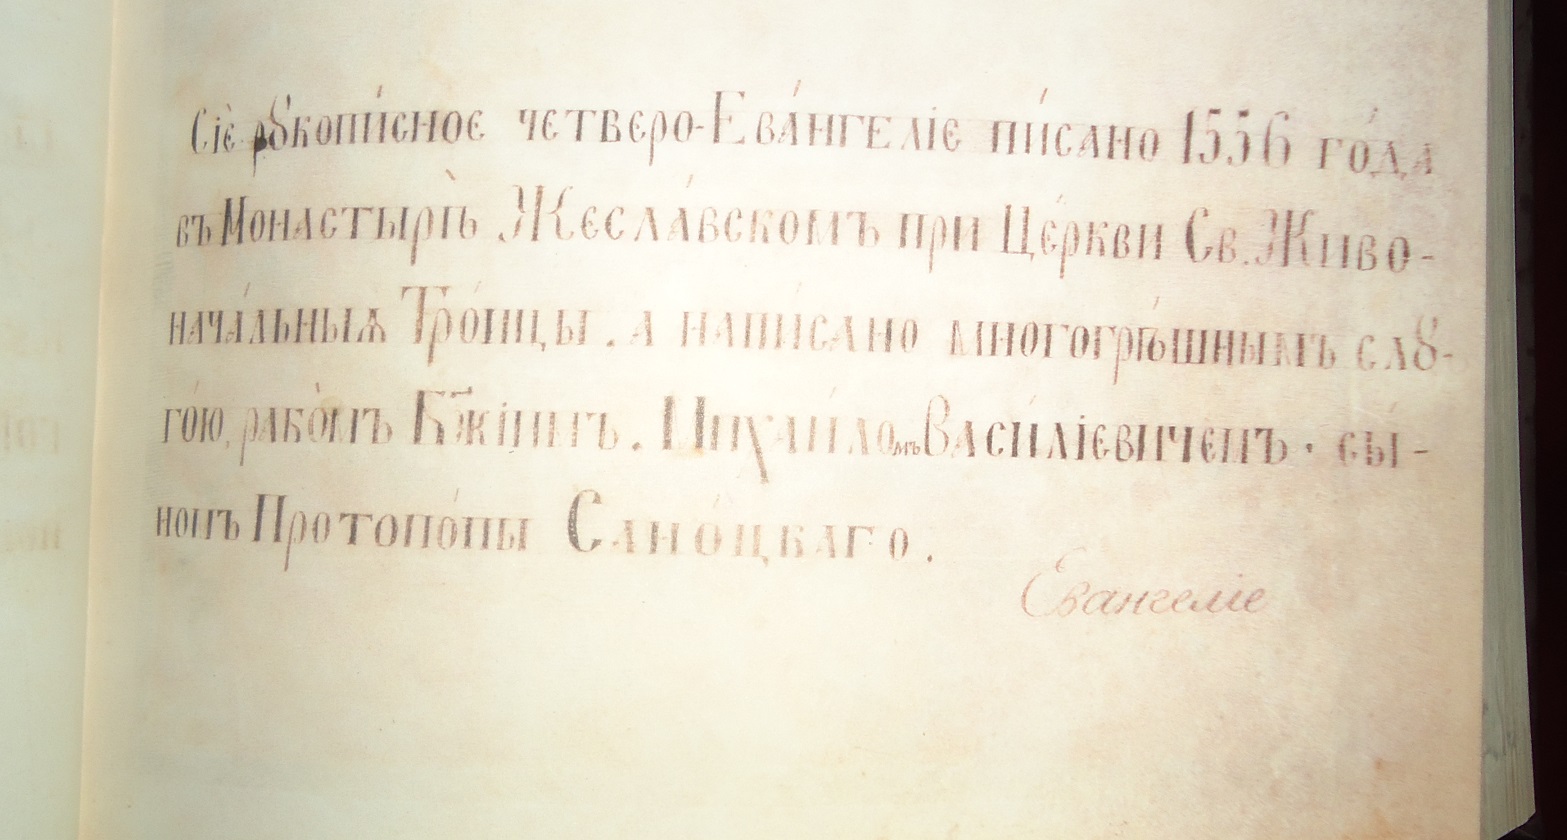 Сіѐ рꙋкопи́сное четверо-Ева́нгеліе пи́сано 1556 го́да
въ Монастырѣ̀ Жесла́вскомъ при Це́ркви Св. Живо-
нача́льныѧ Тро́ицы. а напи́сано многогрѣ́шнымъ слꙋ-
го́ю, рабо́мъ Бж҃іимъ. Михаи́ломъ Васи́лієвичемъ. сы́-
номъ Протопо́пы Сано́цкаго.
Евангеліе